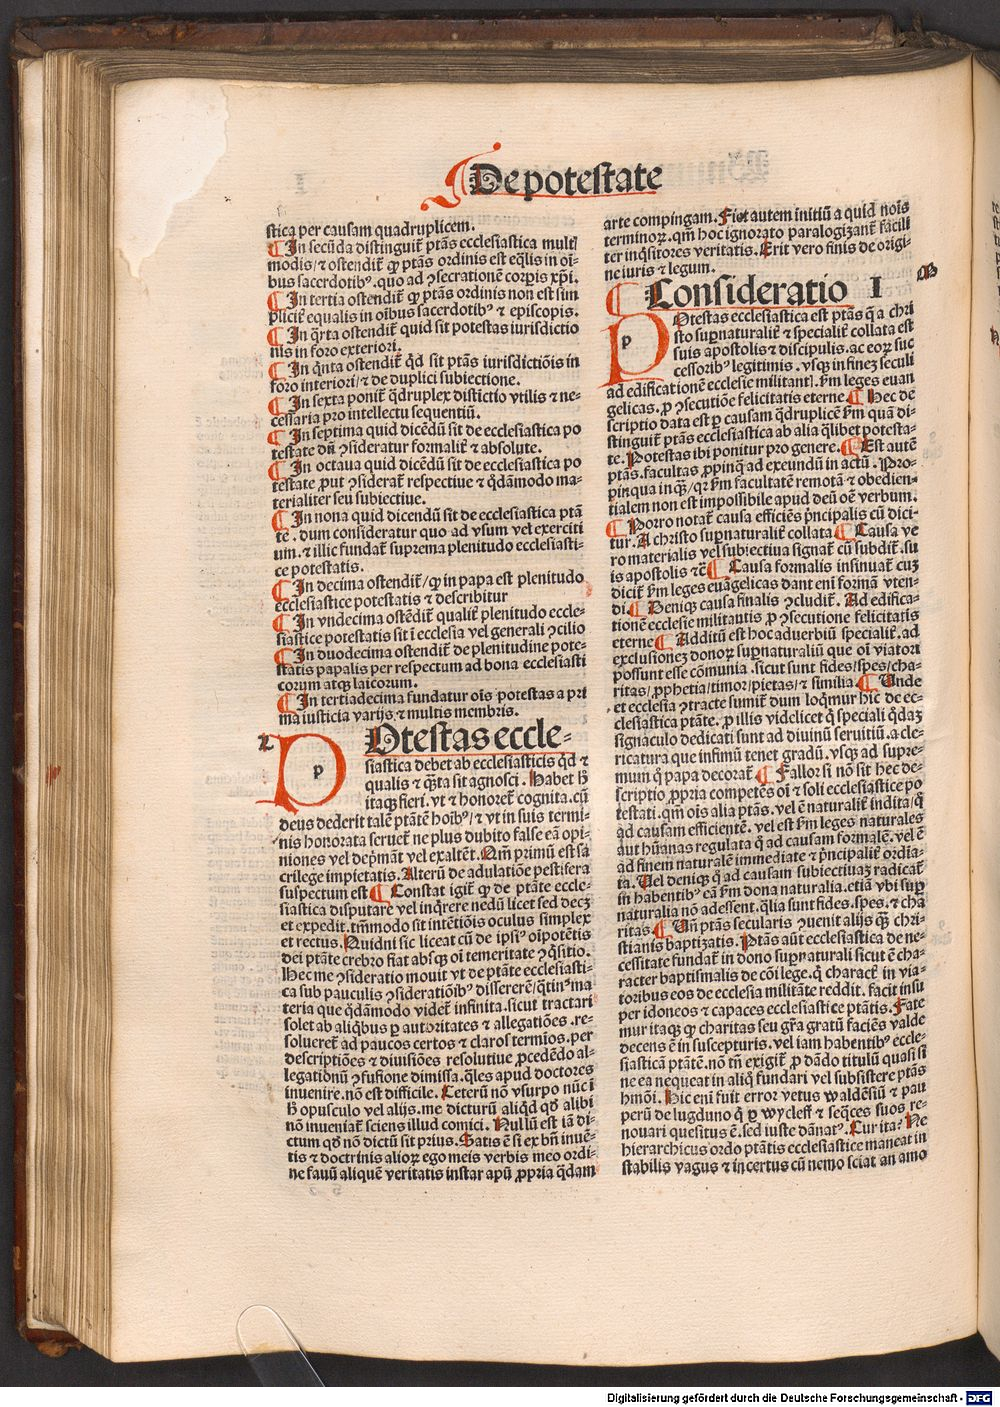 De potestate
stica per causam quadruplicem.
¶ In secūda distinguit̄ ptās ecclesiastica multi
modis/ ⁊ ostendit̄ ꝙ ptās ordinis est eq̄lis in oī-
bus sacerdotibꝰ. quo ad ꝯsecrationē corpꝭis xp̄i.
¶ In tertia ostendit̄ ꝙ ptās ordinis non est sim
pliciť equalis in oībus sacerdotibꝰ ⁊ episcopis.
¶ In q̄rta ostendit̄ quid sit potestas iurisdictio
nis in foro exteriori.
¶ In q̄nta ostendit̄ qđ sit ptās iurisdictiōis in
foro interiori/ ⁊ de duplici subiectione.
¶ In sexta ponit̄ q̄druplex distictio vtilis ⁊ ne-
cessaria pro intellectu sequentiū.
¶ In septima quid dicēdū sit de ecclesiastica po
testate dū ꝯsideratur formaliť ⁊ absolute.
¶ In octaua quid dicēdū sit de ecclesiastica po
testate ꝓut ꝯsiderat̄ respectiue ⁊ q̄dāmodo ma-
terialiter seu subiectiue.
¶ In nona quid dicendū sit de ecclesiastica ptā
te. dum consideratur quo ad vsum vel exerciti
um. ⁊ illic fundat̄ suprema plenitudo ecclesiasti-
ce potestatis.
¶ In decima ostendit̄/ ꝙ in papa est plenitudo
ecclesiastice potestatis ⁊ describitur
¶ In vndecima ostēdit̄ qualiť plenitudo eccle-
siastice potestatis sit ī ecclesia vel generali ꝯcilio
¶ In duodecima ostendit̄ de plenitudine pote-
statis papalis per respectum ad bona ecclesiasti
corum atqꝫ laicorum.
¶ In tertiadecima fundatur oīs potestas a pri
ma iusticia varijs ⁊ multis membris.
2
p
Otestas eccle-
siastica debet ab ecclesiasticis qđ ⁊
qualis ⁊ q̄ta sit agnosci. Habet ħ
itaqꝫ fieri. vt ⁊ honoret̄ cognita. cū
deus dederit talē ptātē hoībꝰ/ ⁊ vt in suis termi-
nis honorata seruet̄ ne plus dubito false eā opi-
niones vel dep̄māt vel exaltēt. Nā primū est sa
crilege impietatis. Alterū de adulatiōe pestifera
suspectum est ¶ Constat igiť ꝙ de ptāte eccle-
siastica disputare vel inq̄rere nedū licet sed decꝫ
et expedit. tm̄modo sit intētiōis oculus simplex
et rectus. Quidni sic liceat cū de ipsiꝰ oīpotētis
dei ptāte crebro fiat absqꝫ oī temeritate ꝯq̄sitio.
Hec me ꝯsideratio mouit vt de ptāte ecclesiasti-
ca sub pauculis ꝯsideratiōibꝰ dissererē/ q̄tinꝰ ma
teria que q̄dāmodo videt̄ infinita. sicut tractari
solet ab aliq̄bus ꝑ autoritates ⁊ allegatiōes. re-
solueret̄ ad paucos certos ⁊ claros termīos. per
descriptiōes ⁊ diuisiōes resolutiue ꝓcedēdo al-
legationū ꝯfusione dimissa. q̄les apud doctores
inuenire. nō est difficile. Ceterū nō vsurpo nūc ī
ħ opusculo vel alijs. me dicturū aliqđ qđ alibi
nō inueniať sciens illud comici. Nullū est iā di-
ctum qđ nō dictū sit prius. Satis ē si ex bn̄ inuē-
tis ⁊ doctrinis alioꝝ ego meis verbis meo ordi-
ne fauū aliquē veritatis instar apū ꝓpria q̄dam
arte compingam. Fiet autem initiū a quid noīs
terminoꝝ. qm̄ hoc ignorato paralogizant̄ facili
ter inq̄sitores veritatis. Erit vero finis de origi-
ne iuris ⁊ legum.
Consideratio I
p
Otestas ecclesiastica est ptās q̄ a chri
sto supnaturaliť ⁊ specialiť collata est
suis apostolis ⁊ discipulis. ac eoꝝ suc
cessoribꝰ legitimis. vsqꝫ in fineꝫ seculi
ad edificationē ecclesie militant̄. ẜm leges euan
gelicas. ꝓ ꝯsecutiōe felicitatis eterne. ¶ Hec de
scriptio data est ꝑ causam q̄druplicē ẜm quā di-
stinguit̄ ptās ecclesiastica ab alia q̄libet potesta-
te. Potestas ibi ponitur pro genere. ¶ Est autē
ptās. facultas ꝓpinq̄ ad exeundū in actū. Pro-
pinqua inq̄ꝫ/ qꝛ ẜm facultatē remotā ⁊ obedien-
tialem non est impossibile apud deū oē verbum.
¶ Porro notat̄ causa efficiēs p̄ncipalis cū dici-
tur. A christo supnaturaliť collata ¶ Causa ve
ro materialis vel subiectiua signat̄ cū subdit̄. su
is apostolis ⁊c̄ ¶ Causa formalis insinuat̄ cuꝫ
dicit̄ ẜm leges euāgelicas dant enī formā vten-
di. ¶ Deniqꝫ causa finalis ꝯcludit̄. Ad edifica-
tionē ecclesie militantis ꝓ ꝯsecutione felicitatis
eterne ¶ Additū est hoc aduerbiū specialiť. ad
exclusioneꝫ donoꝝ supnaturaliū que oī viatori
possunt esse cōmunia. sicut sunt fides/ spes/ cha-
ritas/ ꝓphetia/ timor/ pietas/ ⁊ similia. ¶ Unde
et ecclesia ꝯtracte sumit̄ dum loq̄mur hic de ec-
clesiastica ptāte. ꝓ illis videlicet q̄ speciali q̄daꝫ
signaculo dedicati sunt ad diuinū seruitiū. a cle-
ricatura que infimū tenet gradū. vsqꝫ ad supre-
mum q̄ papa decorat̄ ¶ Fallor si nō sit hec de-
scriptio ꝓpria competēs oī ⁊ soli ecclesiastice po
testati. qm̄ oīs alia ptās. vel ē naturaliť indita/ q̄
ad causam efficientē. vel est ẜm leges naturales
aut hūanas regulata q̄ ad causam formalē. vel ē
ad finem naturalē immediate ⁊ p̄ncipaliť ordīa-
ta. Vel deniqꝫ q̄ ad causam subiectiuaꝫ radicat̄
in habentibꝰ eā ẜm dona naturalia. etiā vbi sup
naturalia nō adessent. q̄lia sunt fides. spes. ⁊ cha
ritas. ¶ Uñ ptās secularis ꝯuenit alijs q̄ꝫ chri-
stianis baptizatis. Ptās aūt ecclesiastica de ne-
cessitate fundat̄ in dono supnaturali sicut ē cha-
racter baptismalis de cōi lege. q̄ charact̄ in via-
toribus eos de ecclesia militāte reddit. facit insu
per idoneos ⁊ capaces ecclesiastice ptātis. Fate
mur itaqꝫ ꝙ charitas seu gr̄a gratū faciēs valde
decens ē in suscepturis. vel iam habentibꝰ eccle-
siasticā ptātē. nō tn̄ exigit̄ ꝓ dādo titulū quasi si
ne ea nequeat in aliq̄ fundari vel subsistere ptās
hm̄oi. Hic enī fuit error vetus waldēsiū ⁊ pau
perū de lugduno q̄ ꝑ wycleff ⁊ seq̄ces suos re-
nouari quesitus ē. sed iuste dānat̄. Cur ita? Ne
hierarchicus ordo ptātis ecclesiastice maneat in
stabilis vagus ⁊ incertus cū nemo sciat an amo
Digitalisierung gefördert durch die Deutsche Forschungsgemeinschaft - DFG